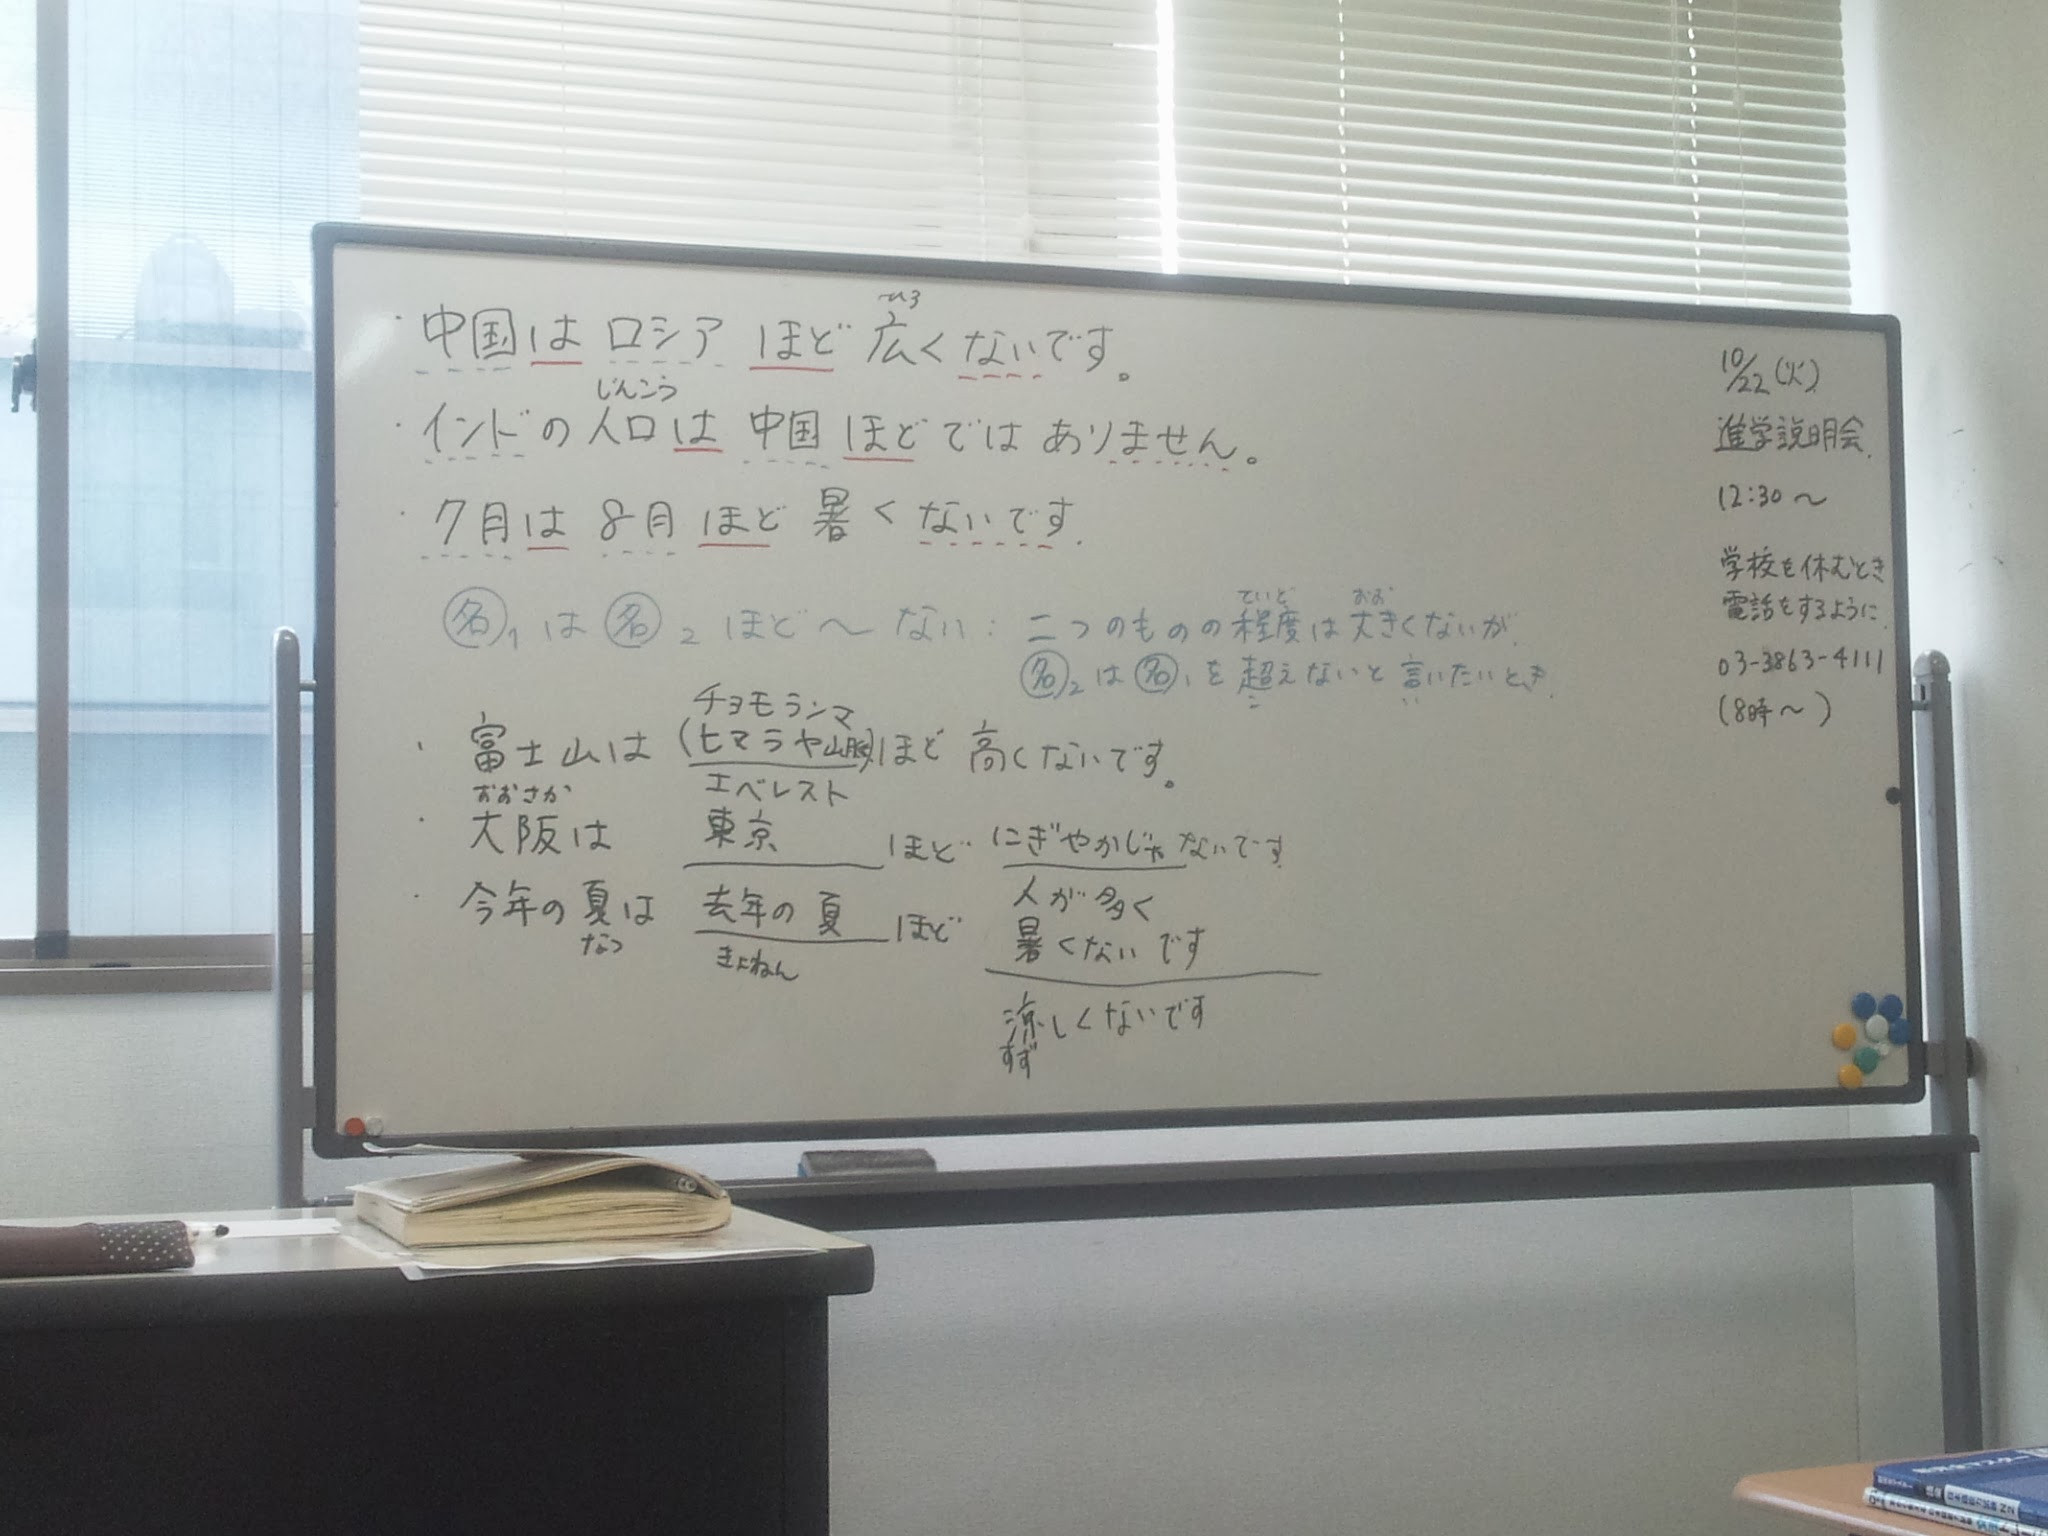 ひろ
・中国は ロシア ほど 広くないです。
じんこう
・インドの人口は 中国 ほどではありません。
・7月は 8月 ほど 暑くないです.
ていど おお
名1は名2ほど〜ない：二つのものの程度は大きくないが、
名2は名1を超えないと言いたいとき.
こ い
チョモランマ
・富士山は (ヒマラヤ山脈)ほど 高くないです。
エベレスト
おおさか
・大阪は 東京 ほど にぎやかじゃないです.
人が多く
・今年の夏は 去年の夏 ほど 暑くないです
なつ きょねん
涼しくないです
すず
10/22(火)
進学説明会.
12:30〜
学校を休むとき
電話をするように.
03-3863-4111
(8時〜)